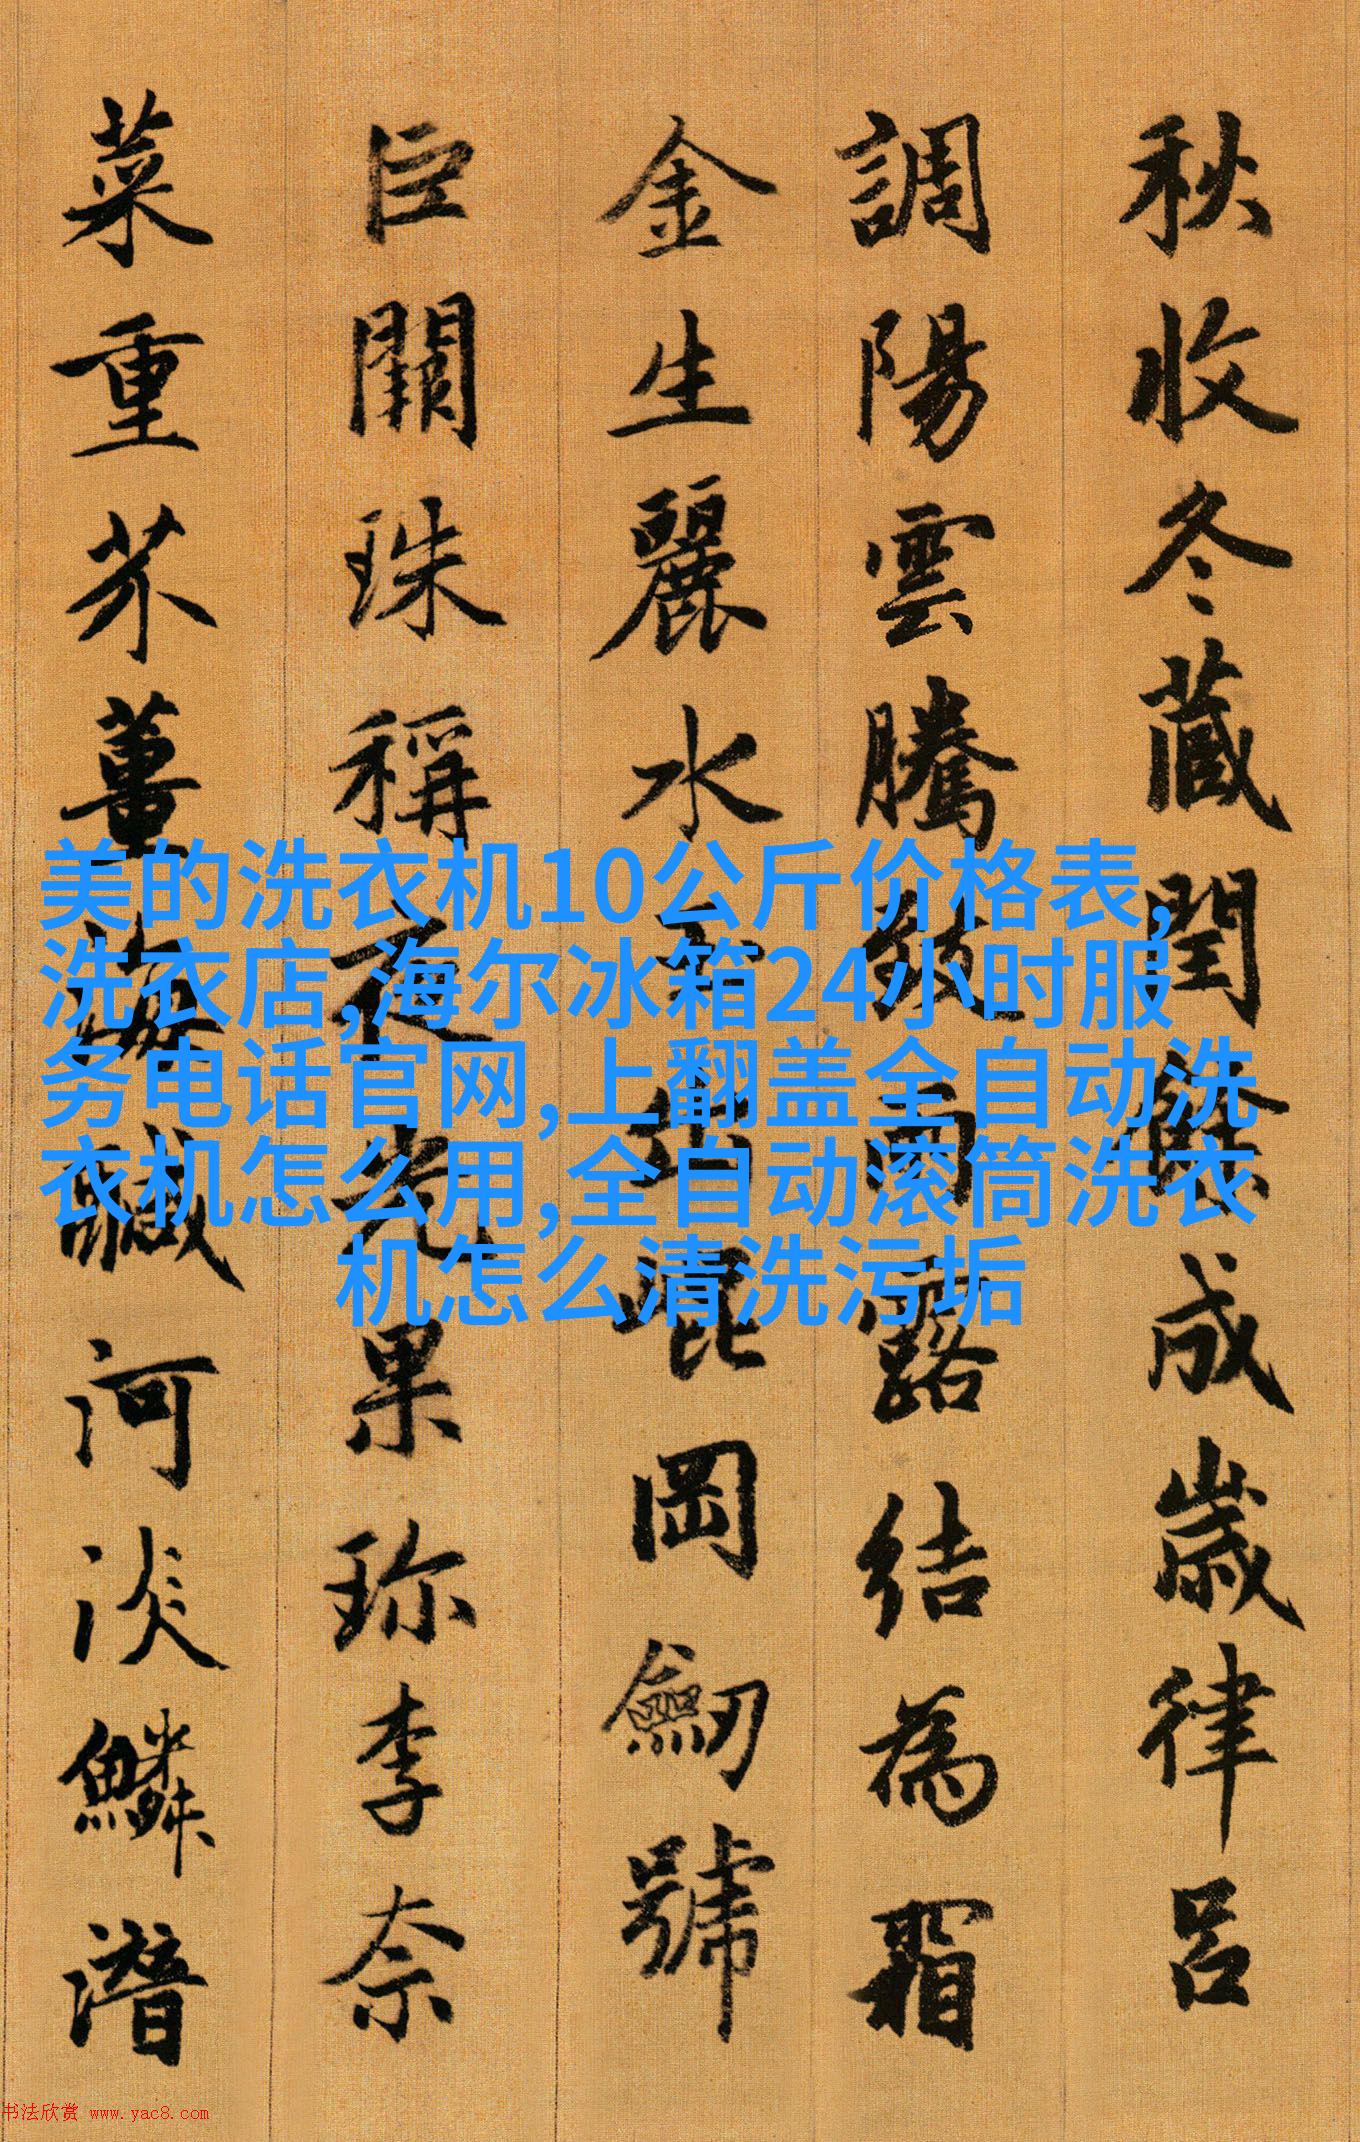 秋收冬藏閏餘成歲律呂
調陽雲騰致雨露結為霜
金生麗水玉出崑岡劒號
巨闕珠稱夜光果珍李奈
菜重芥薑海鹹河淡鱗潛
美的洗衣机10公斤价格表,
洗衣店,海尔冰箱24小时服
务电话官网,上翻盖全自动洗
衣机怎么用,全自动滚筒洗衣
机怎么清洗污垢
书法欣赏 www.yac8.com